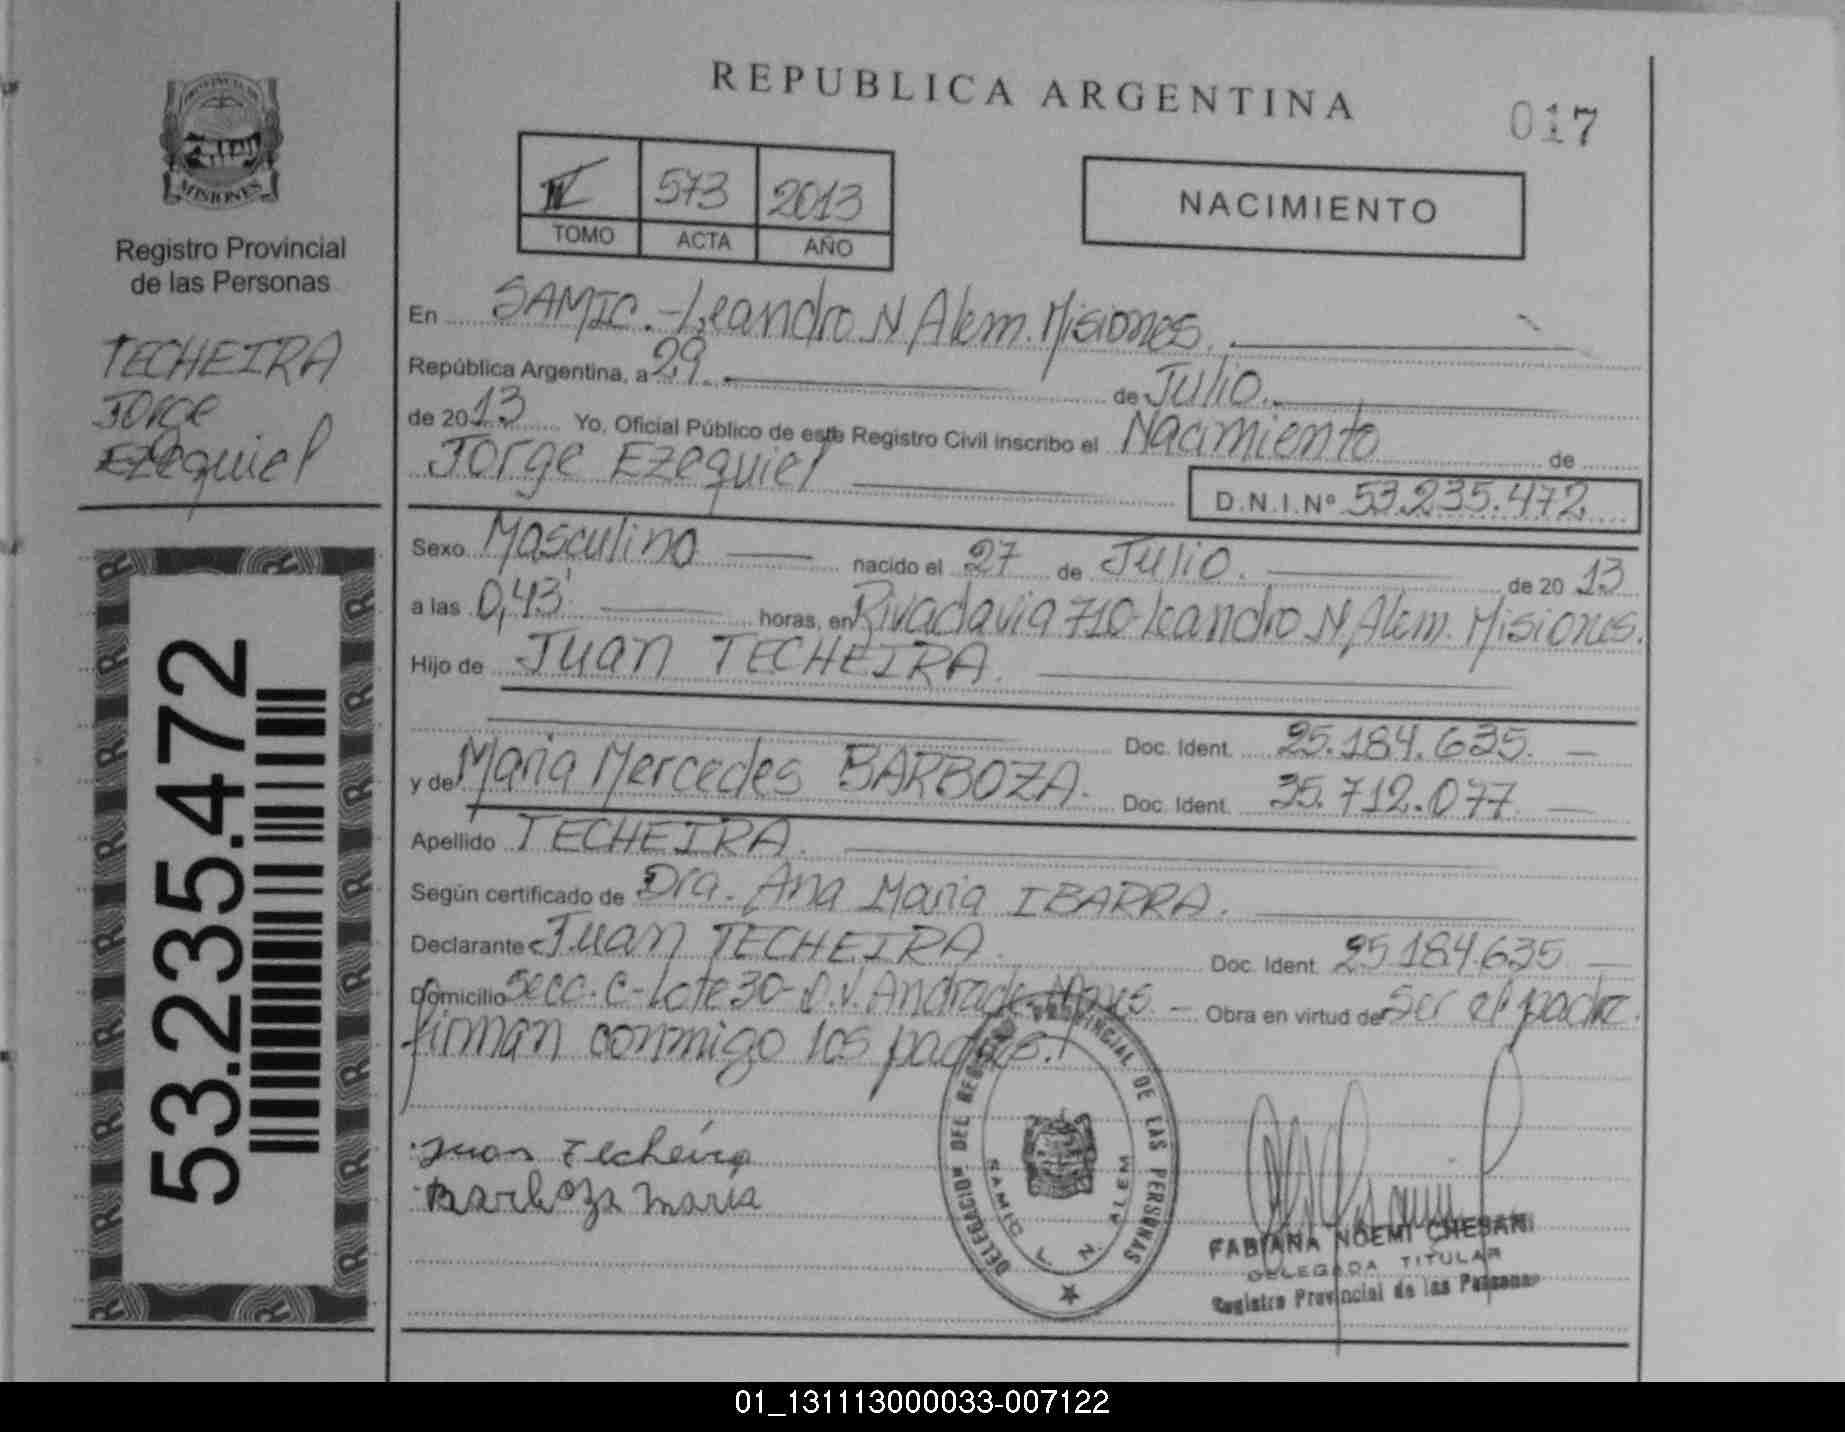 PROVINCIA DE
MISIONES
Registro Provincial
de las Personas
TECHEIRA
Jorge
Ezequiel
53.235.472
REPUBLICA ARGENTINA
017
II 573 2013
TOMO ACTA AÑO
NACIMIENTO
En SAMIC.-Leandro N Alem. Misiones.
República Argentina, a 29. de Julio.
de 2013 Yo, Oficial Público de este Registro Civil inscribo el Nacimiento de
Jorge Ezequiel D.N.I.Nº 53.235.472
Sexo Masculino nacido el 27 de Julio. de 2013
a las 0,43' horas, en Rivadavia 710-Leandro N Alem. Misiones.
Hijo de Juan TECHEIRA.
Doc. Ident. 25.184.635. —
y de Maria Mercedes BARBOZA. Doc. Ident. 35.712.077. —
Apellido TECHEIRA.
Según certificado de Dra. Ana Maria IBARRA.
Declarante Juan TECHEIRA. Doc. Ident. 25.184.635. —
Domicilio Secc. C-Lote 30-D.V. Andrade. Mnes. — Obra en virtud de Ser el padre.
firman conmigo los padres.
Juan Techeira
Barboza maria
DELEGACION DEL REGISTRO PROVINCIAL DE LAS PERSONAS
SAMIC L. N. ALEM
FABIANA NOEMI CHESANI
DELEGADA TITULAR
Registro Provincial de las Personas
01_131113000033-007122